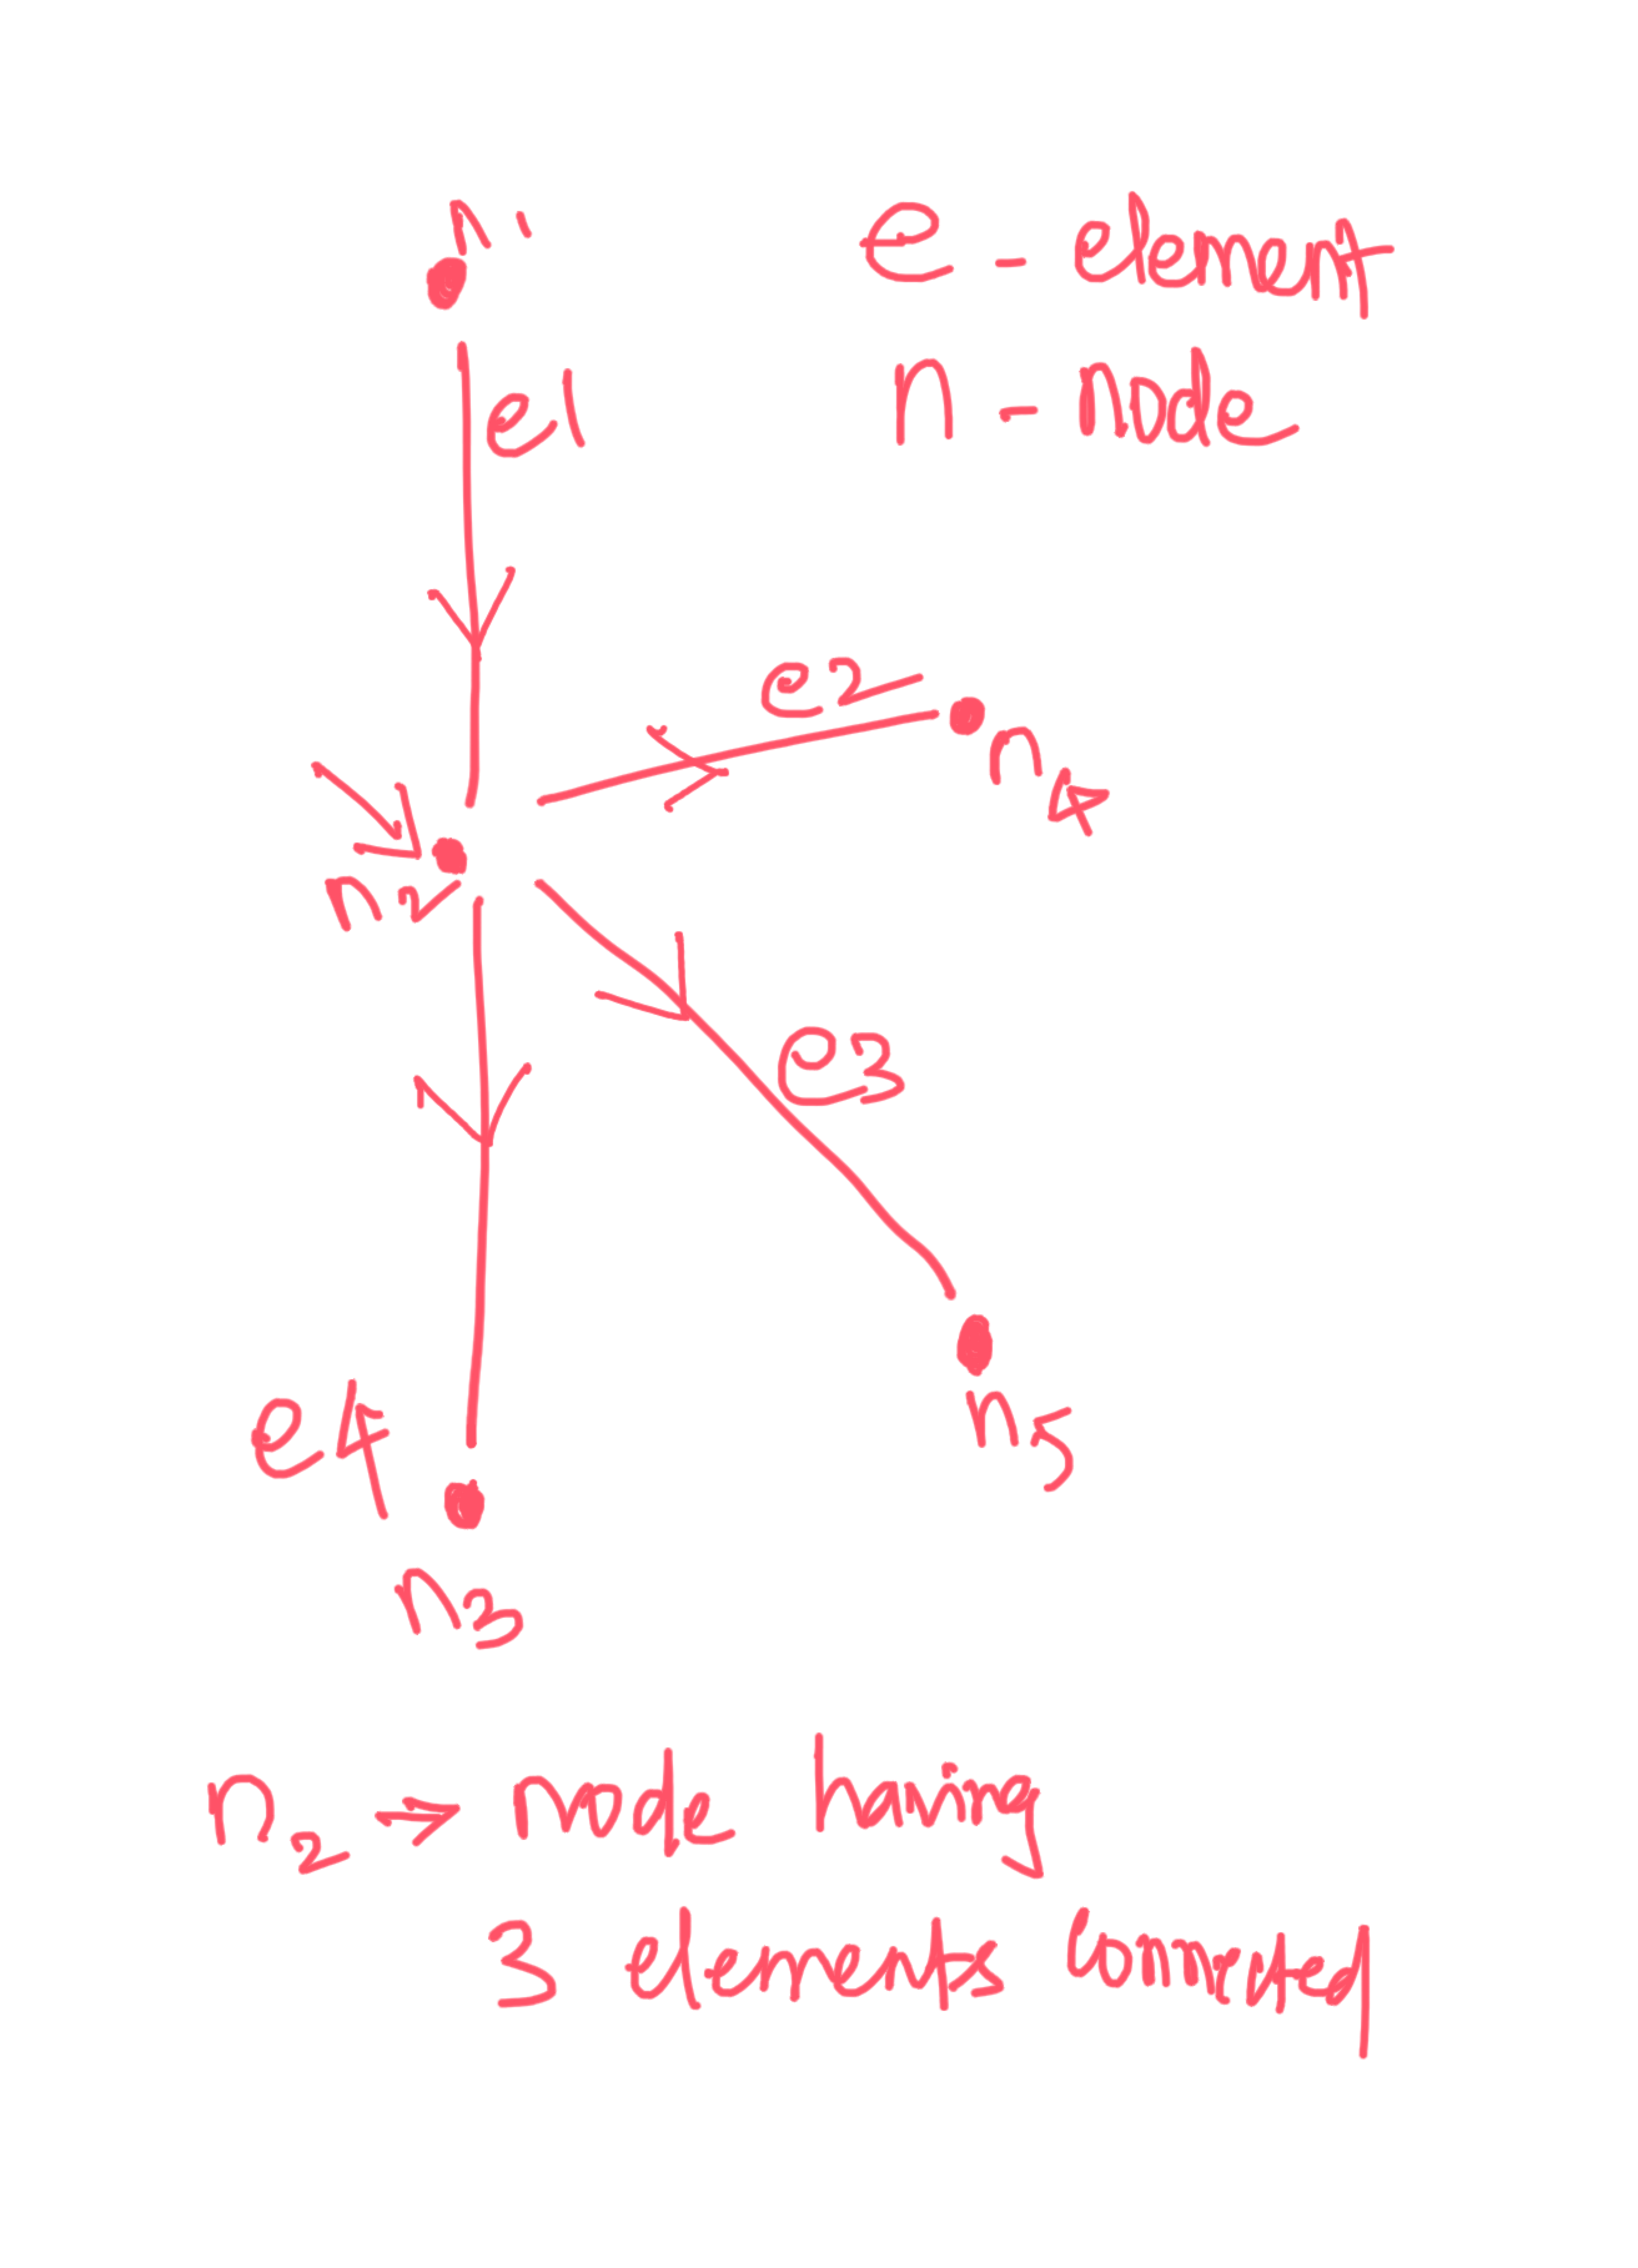 n1
e - element
n - node
e1
e2
n4
n2
e3
e4
n5
n3
n2 → node having
3 elements connected